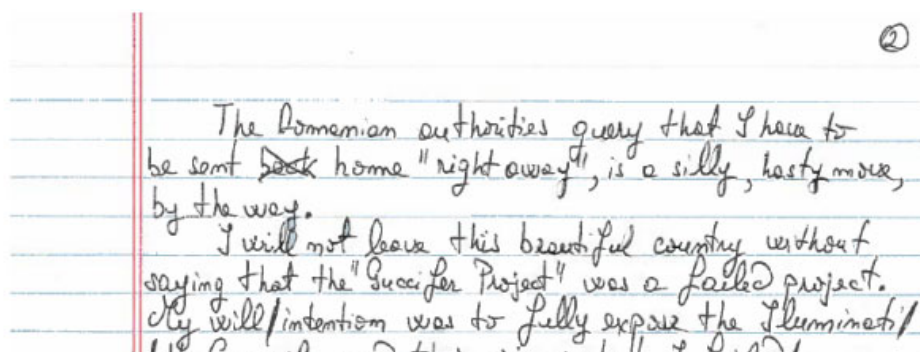 ②
The Romanian authorities query that I have to
be sent back home "right away", is a silly, hasty move,
by the way.
I will not leave this beautiful country without
saying that the "Guccifer Project" was a failed project.
My will/intention was to fully expose the Illuminati/